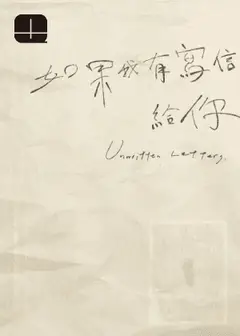 如果我有寫信
給你
Unwritten Letters